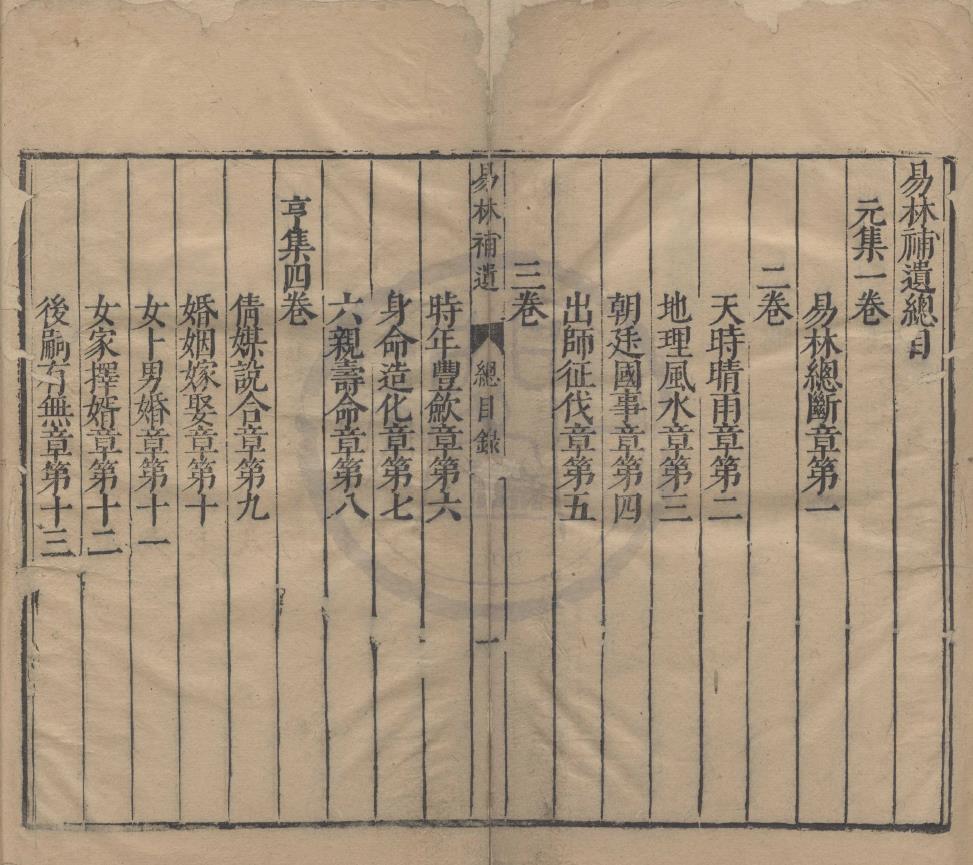 易林補遺總目
元集一卷
易林總斷章第一
二卷
天時晴雨章第二
地理風水章第三
朝廷國事章第四
出師征伐章第五
三卷
易林補遺 總目錄 一
時年豐歉章第六
身命造化章第七
六親壽命章第八
亨集四卷
倩媒說合章第九
婚姻嫁娶章第十
女卜男婚章第十一
女家擇婿章第十二
後嗣有無章第十三